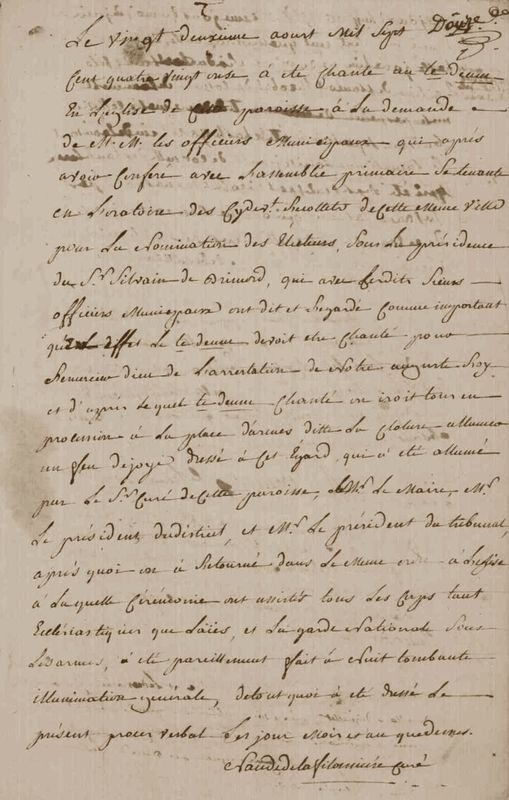 Douze
Le vingt deuxieme aoust Mil Sept
Cent quatre vingt onze, à eté Chanté au le deum
En L'eglise de cette paroisse à La demande
de M. M. les officiers Municipaux qui apres
avoir Conferé avec L'assemblée primaire Se tenante
en L'oratoire des Cydevt. Recollets de cette Meme ville
pour La Nomination des Electeurs, Sous La présidence
du Sr. Silvain de Brimord, qui avec lesdits Sieurs
officiers Municipaux ont dit et Regardé Comme important
qu'en effet Le te deum devoit etre Chanté pour
Remercier dieu de L'acceptation de Notre auguste Roy
et d'après Lequel te deum Chanté on iroit tous en
procession à La place d'armes ditte La Cloture allumer
un feu de joye dressé à Cet Egard, qui a eté allumé
par Le Sr. Curé de Cette paroisse, Mr. Le Maire, Mr.
Le président du district, et Mr. Le président du tribunal,
après quoi on à Retourné dans Le Meme ordre a L'eglise
à La quelle Cérémonie ont assistés tous Les Corps tant
Ecclesiastiques que Laïes, et La garde National Sous
Les armes, à eté pareillement fait à Nuit tombante
illumination générale, de tout quoi à eté dressé Le
présent procès verbal Les jour Mois et an que dessus.
Curé